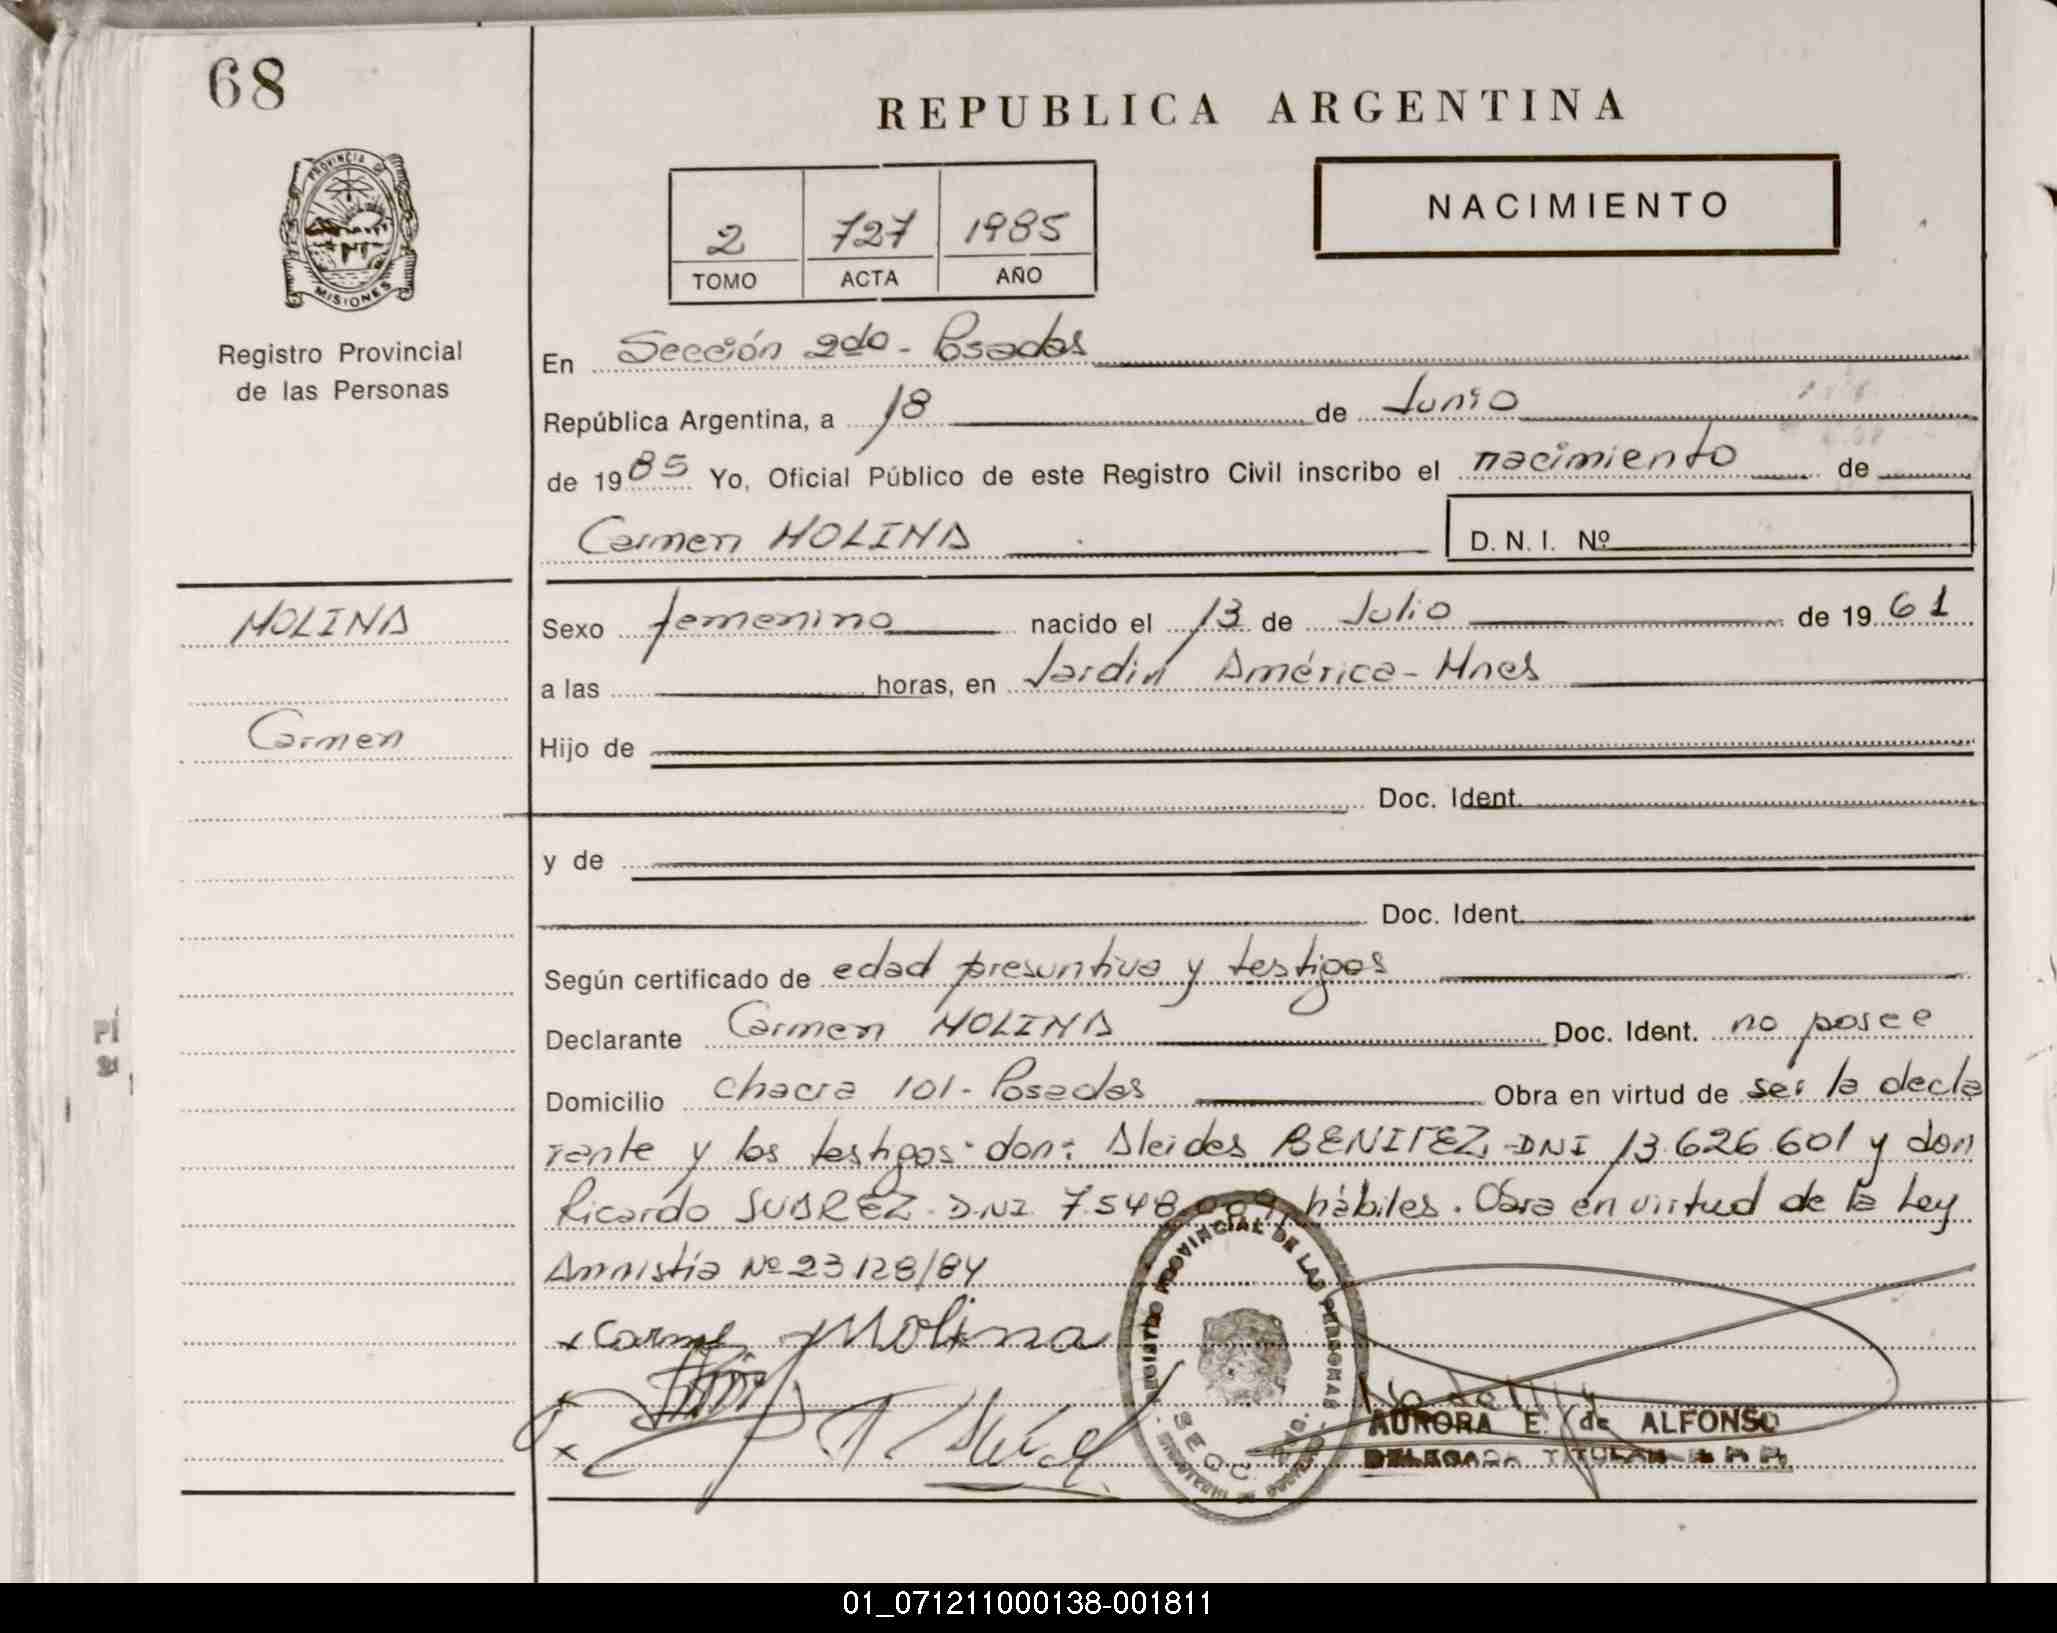 68
REPUBLICA ARGENTINA
PROVINCIA DE
MISIONES
Registro Provincial
de las Personas
NACIMIENTO
2 727 1985
TOMO ACTA AÑO
En Sección 2da - Posadas
República Argentina, a 18 de Junio
de 1985 Yo, Oficial Público de este Registro Civil inscribo el nacimiento de
Carmen MOLINA D. N. I. Nº
MOLINA
Carmen
Sexo femenino nacido el 13 de Julio de 1961
a las horas, en Jardín América - Mnes
Hijo de
Doc. Ident.
y de
Doc. Ident.
Según certificado de edad presuntiva y testigos
Declarante Carmen MOLINA Doc. Ident. no posee
Domicilio Chacra 101 - Posadas Obra en virtud de ser la decla
rante y los testigos: don: Aleides BENITEZ, DNI 13.626.601 y don
Ricardo SUAREZ. DNI 7.548.069 hábiles. Obra en virtud de la Ley
Amnistía Nº 23128/84
x Carmen Molina
x
x
REGISTRO PROVINCIAL DE LAS PERSONAS
SECC.
AURORA E. de ALFONSO
DELEGADA TITULAR
01_071211000138-001811